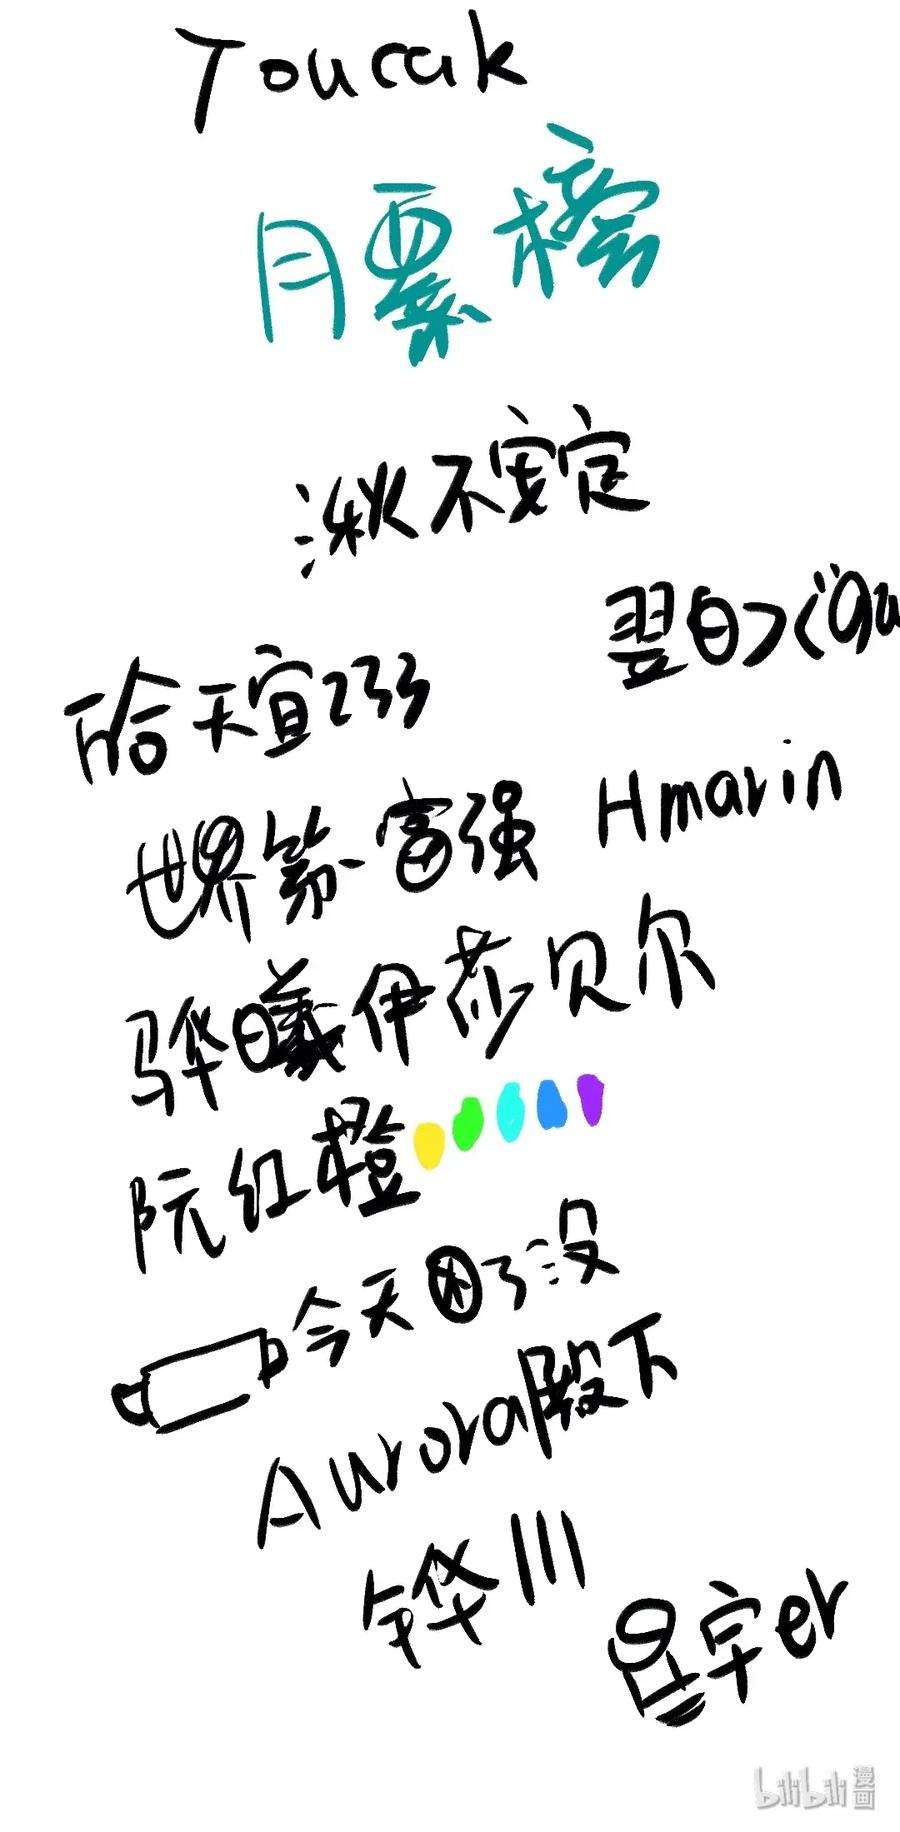 Tourak
月票榜
湫不安定
翌日
哈天宜233
世界第一富强 Hmarin
骅曦伊莎贝尔
阮红橙
今天困了没
Aurora殿下
铧川
星宇er
bilibili漫画